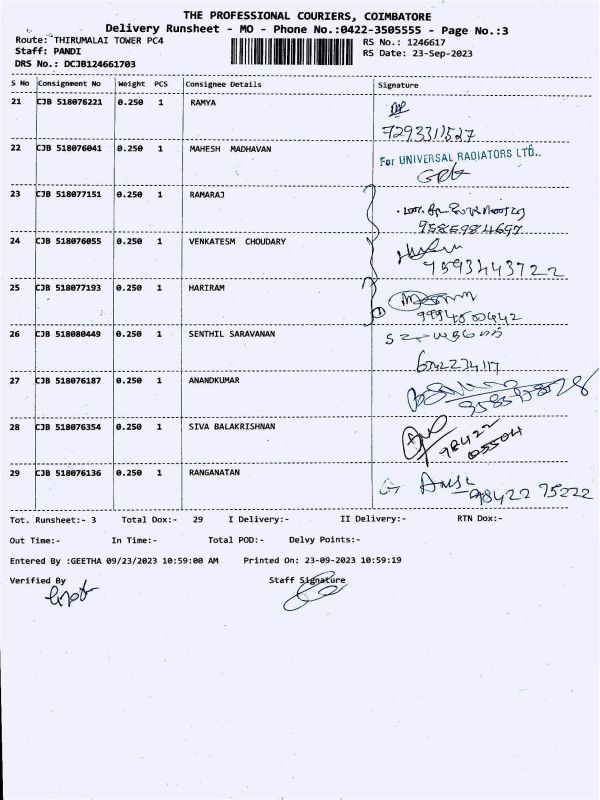 THE PROFESSIONAL COURIERS, COIMBATORE
Delivery Runsheet - MO - Phone No.:0422-3505555 - Page No.:3
Route: THIRUMALAI TOWER PC4 RS No.: 1246617
Staff: PANDI RS Date: 23-Sep-2023
DRS No.: DCJB124661703
S No Consignment No Weight PCS Consignee Details Signature
21 CJB 518076221 0.250 1 RAMYA
7293311527
22 CJB 518076041 0.250 1 MAHESH MADHAVAN
For UNIVERSAL RADIATORS LTD..
23 CJB 518077151 0.250 1 RAMARAJ
9585984697
24 CJB 518076055 0.250 1 VENKATESM CHOUDARY
7593443722
25 CJB 518077193 0.250 1 HARIRAM
26 CJB 518080449 0.250 1 SENTHIL SARAVANAN
27 CJB 518076187 0.250 1 ANANDKUMAR
28 CJB 518076354 0.250 1 SIVA BALAKRISHNAN
98422
05504
29 CJB 518076136 0.250 1 RANGANATAN
98422 75222
Tot. Runsheet:- 3 Total Dox:- 29 I Delivery:- II Delivery:- RTN Dox:-
Out Time:- In Time:- Total POD:- Delvy Points:-
Entered By :GEETHA 09/23/2023 10:59:00 AM Printed On: 23-09-2023 10:59:19
Verified By Staff Signature